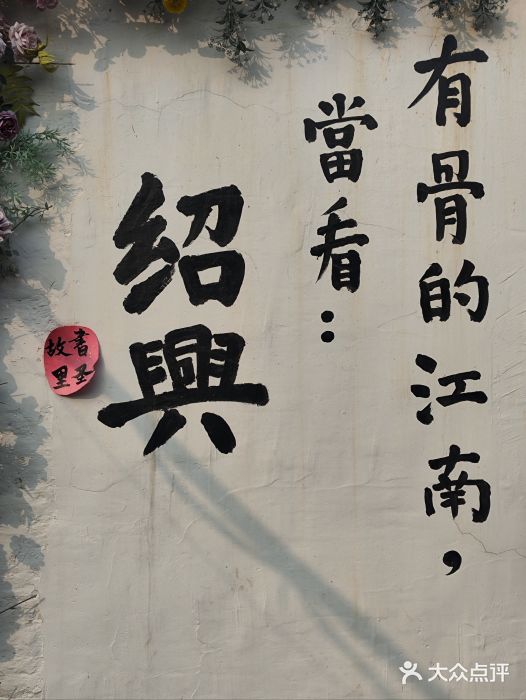 有骨的江南，
當看：
紹興
書圣
故里
大众点评